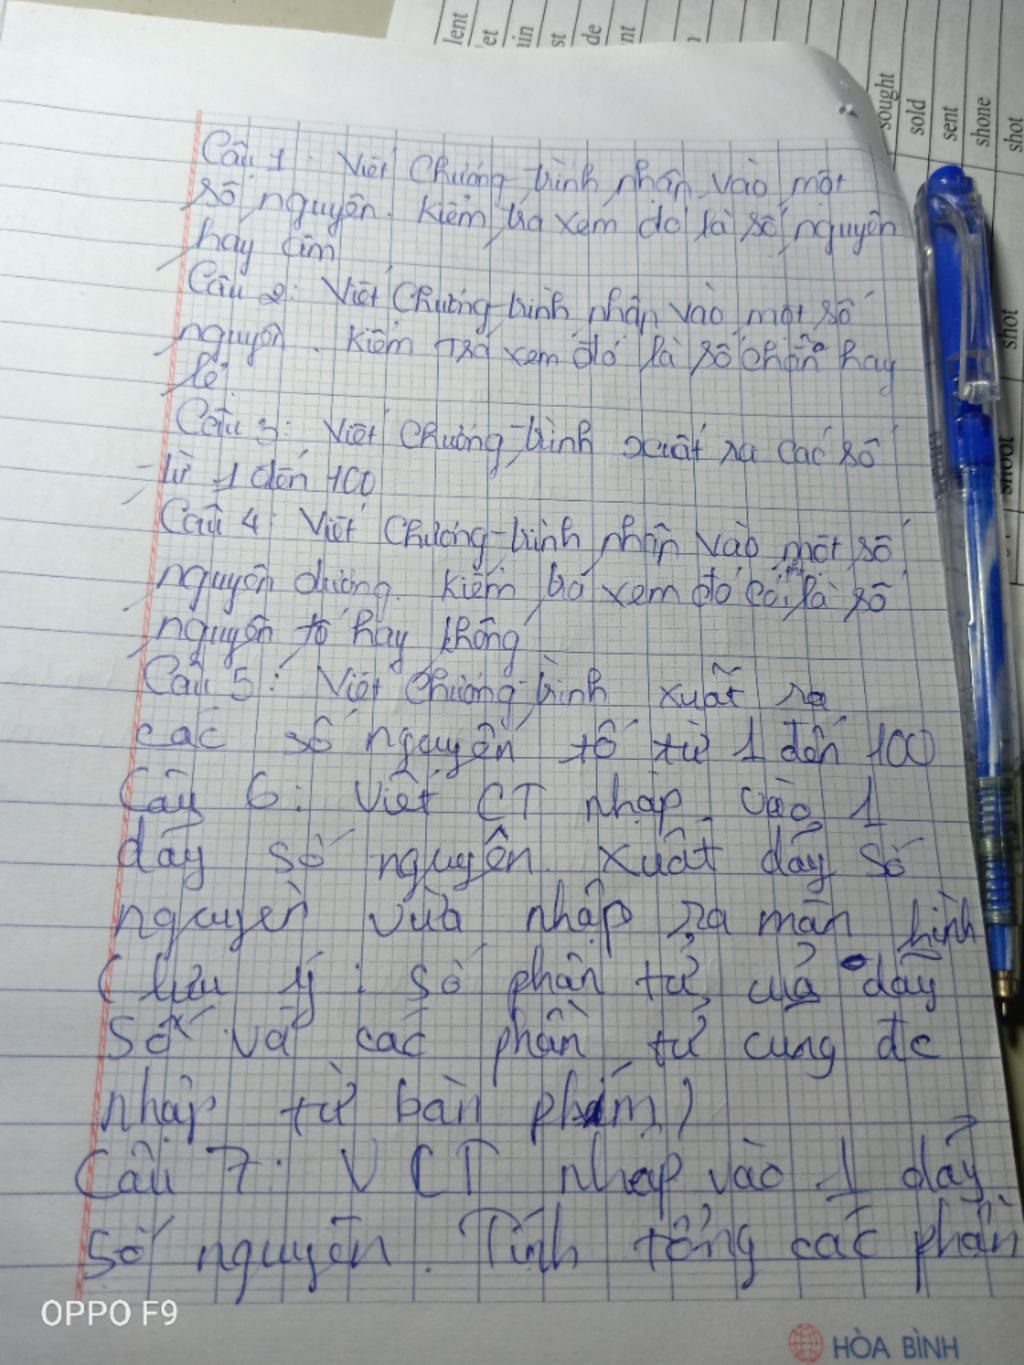 lent
et
in
st
de
nt
sought
sold
sent
shone
shot
shot
shoot
Câu 1: Viết Chương trình nhập vào một
số nguyên. Kiểm tra xem đó là số nguyên
hay âm
Câu 2: Viết Chương trình nhập vào một số
nguyên. Kiểm tra xem đó là số chẵn hay
lẻ
Câu 3: Viết Chương trình xuất ra các số
từ 1 đến 100
Câu 4: Viết Chương trình nhập vào một số
nguyên dương. Kiểm tra xem đó có phải là số
nguyên tố hay không
Câu 5: Viết Chương trình xuất ra
các số nguyên tố từ 1 đến 100
Câu 6: Viết CT nhập vào 1
dãy số nguyên. Xuất dãy số
nguyên vừa nhập ra màn hình
(lưu ý: Số phần tử của dãy
Số và các phần tử cùng đc
nhập từ bàn phím)
Câu 7: V CT nhập vào 1 dãy
Số nguyên. Tính tổng các phần
OPPO F9
HÒA BÌNH